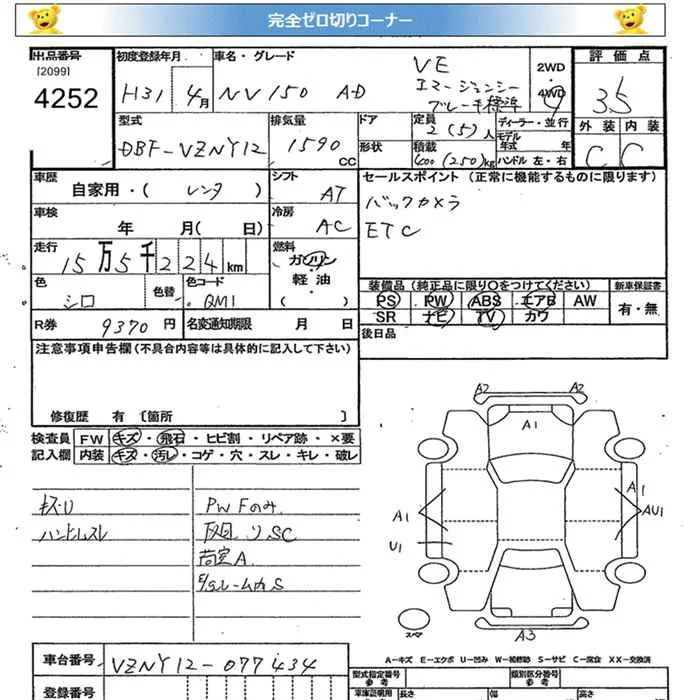 完全ゼロ切りコーナー
出品番号
[2099]
4252
初度登録年月
H31 4月
車名・グレード
NV150 AD
VE
エマージェンシー
ブレーキ標準
2WD
4WD
評価点
3.5
外装 内装
C C
型式
DBF-VZNY12
排気量
1590
CC
ドア
形状
定員
2 (5) 人
積載
600 (250) kg
ディーラー・並行
モデル
年式 年
ハンドル 左・右
車歴
自家用・( レンタ )
シフト
AT
セールスポイント (正常に機能するものに限ります)
バックカメラ
ETC
車検
年 月( 日)
冷房
AC
走行
15万5千224km
燃料
ガソリン
・
軽油
色
シロ
色替
色コード
QM1
装備品 (純正品に限り○をつけてください)
PS PW ABS エアB AW
SR ナビ TV カワ
新車保証書
有・無
R券 9370 円
名変通知期限 月 日
後日品
注意事項申告欄 (不具合内容等は具体的に記入して下さい)
修復歴 有 〔箇所 〕
検査員
記入欄
FW キズ・飛石・ヒビ割・リペア跡・×要
内装 キズ・汚レ・コゲ・穴・スレ・キレ・破レ
キズ・U
ハンドルスレ
PWFのみ
荷室A
A2 A2
A1
A1
U1
A1
AU1
A3
スペア
A-キズ E-エクボ U-凹み W-補修跡 S-サビ C-腐食 XX-交換済
車台番号
VZNY12-077434
登録番号
型式指定番号
参考
類別区分番号
参考
車庫証明用
長さ
幅
高さ